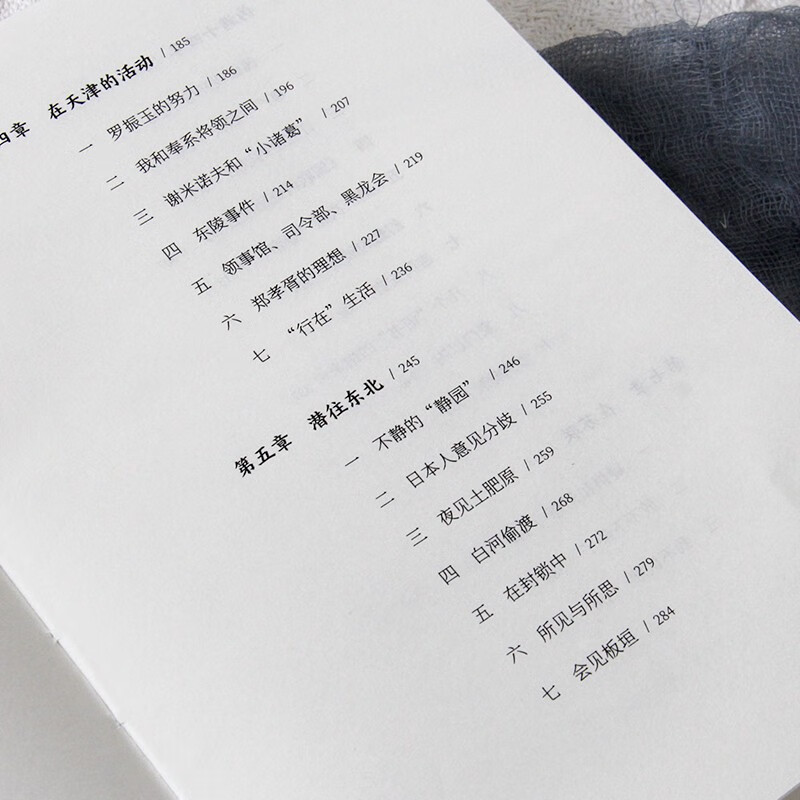 四章　在天津的活动 / 185
一　罗振玉的努力 / 186
二　我和奉系将领之间 / 196
三　谢米诺夫和“小诸葛” / 207
四　东陵事件 / 214
五　领事馆、司令部、黑龙会 / 219
六　郑孝胥的理想 / 227
七　“行在”生活 / 236
第五章　潜往东北 / 245
一　不静的“静园” / 246
二　日本人意见分歧 / 255
三　夜见土肥原 / 259
四　白河偷渡 / 268
五　在封锁中 / 272
六　所见与所思 / 279
七　会见板垣 / 284